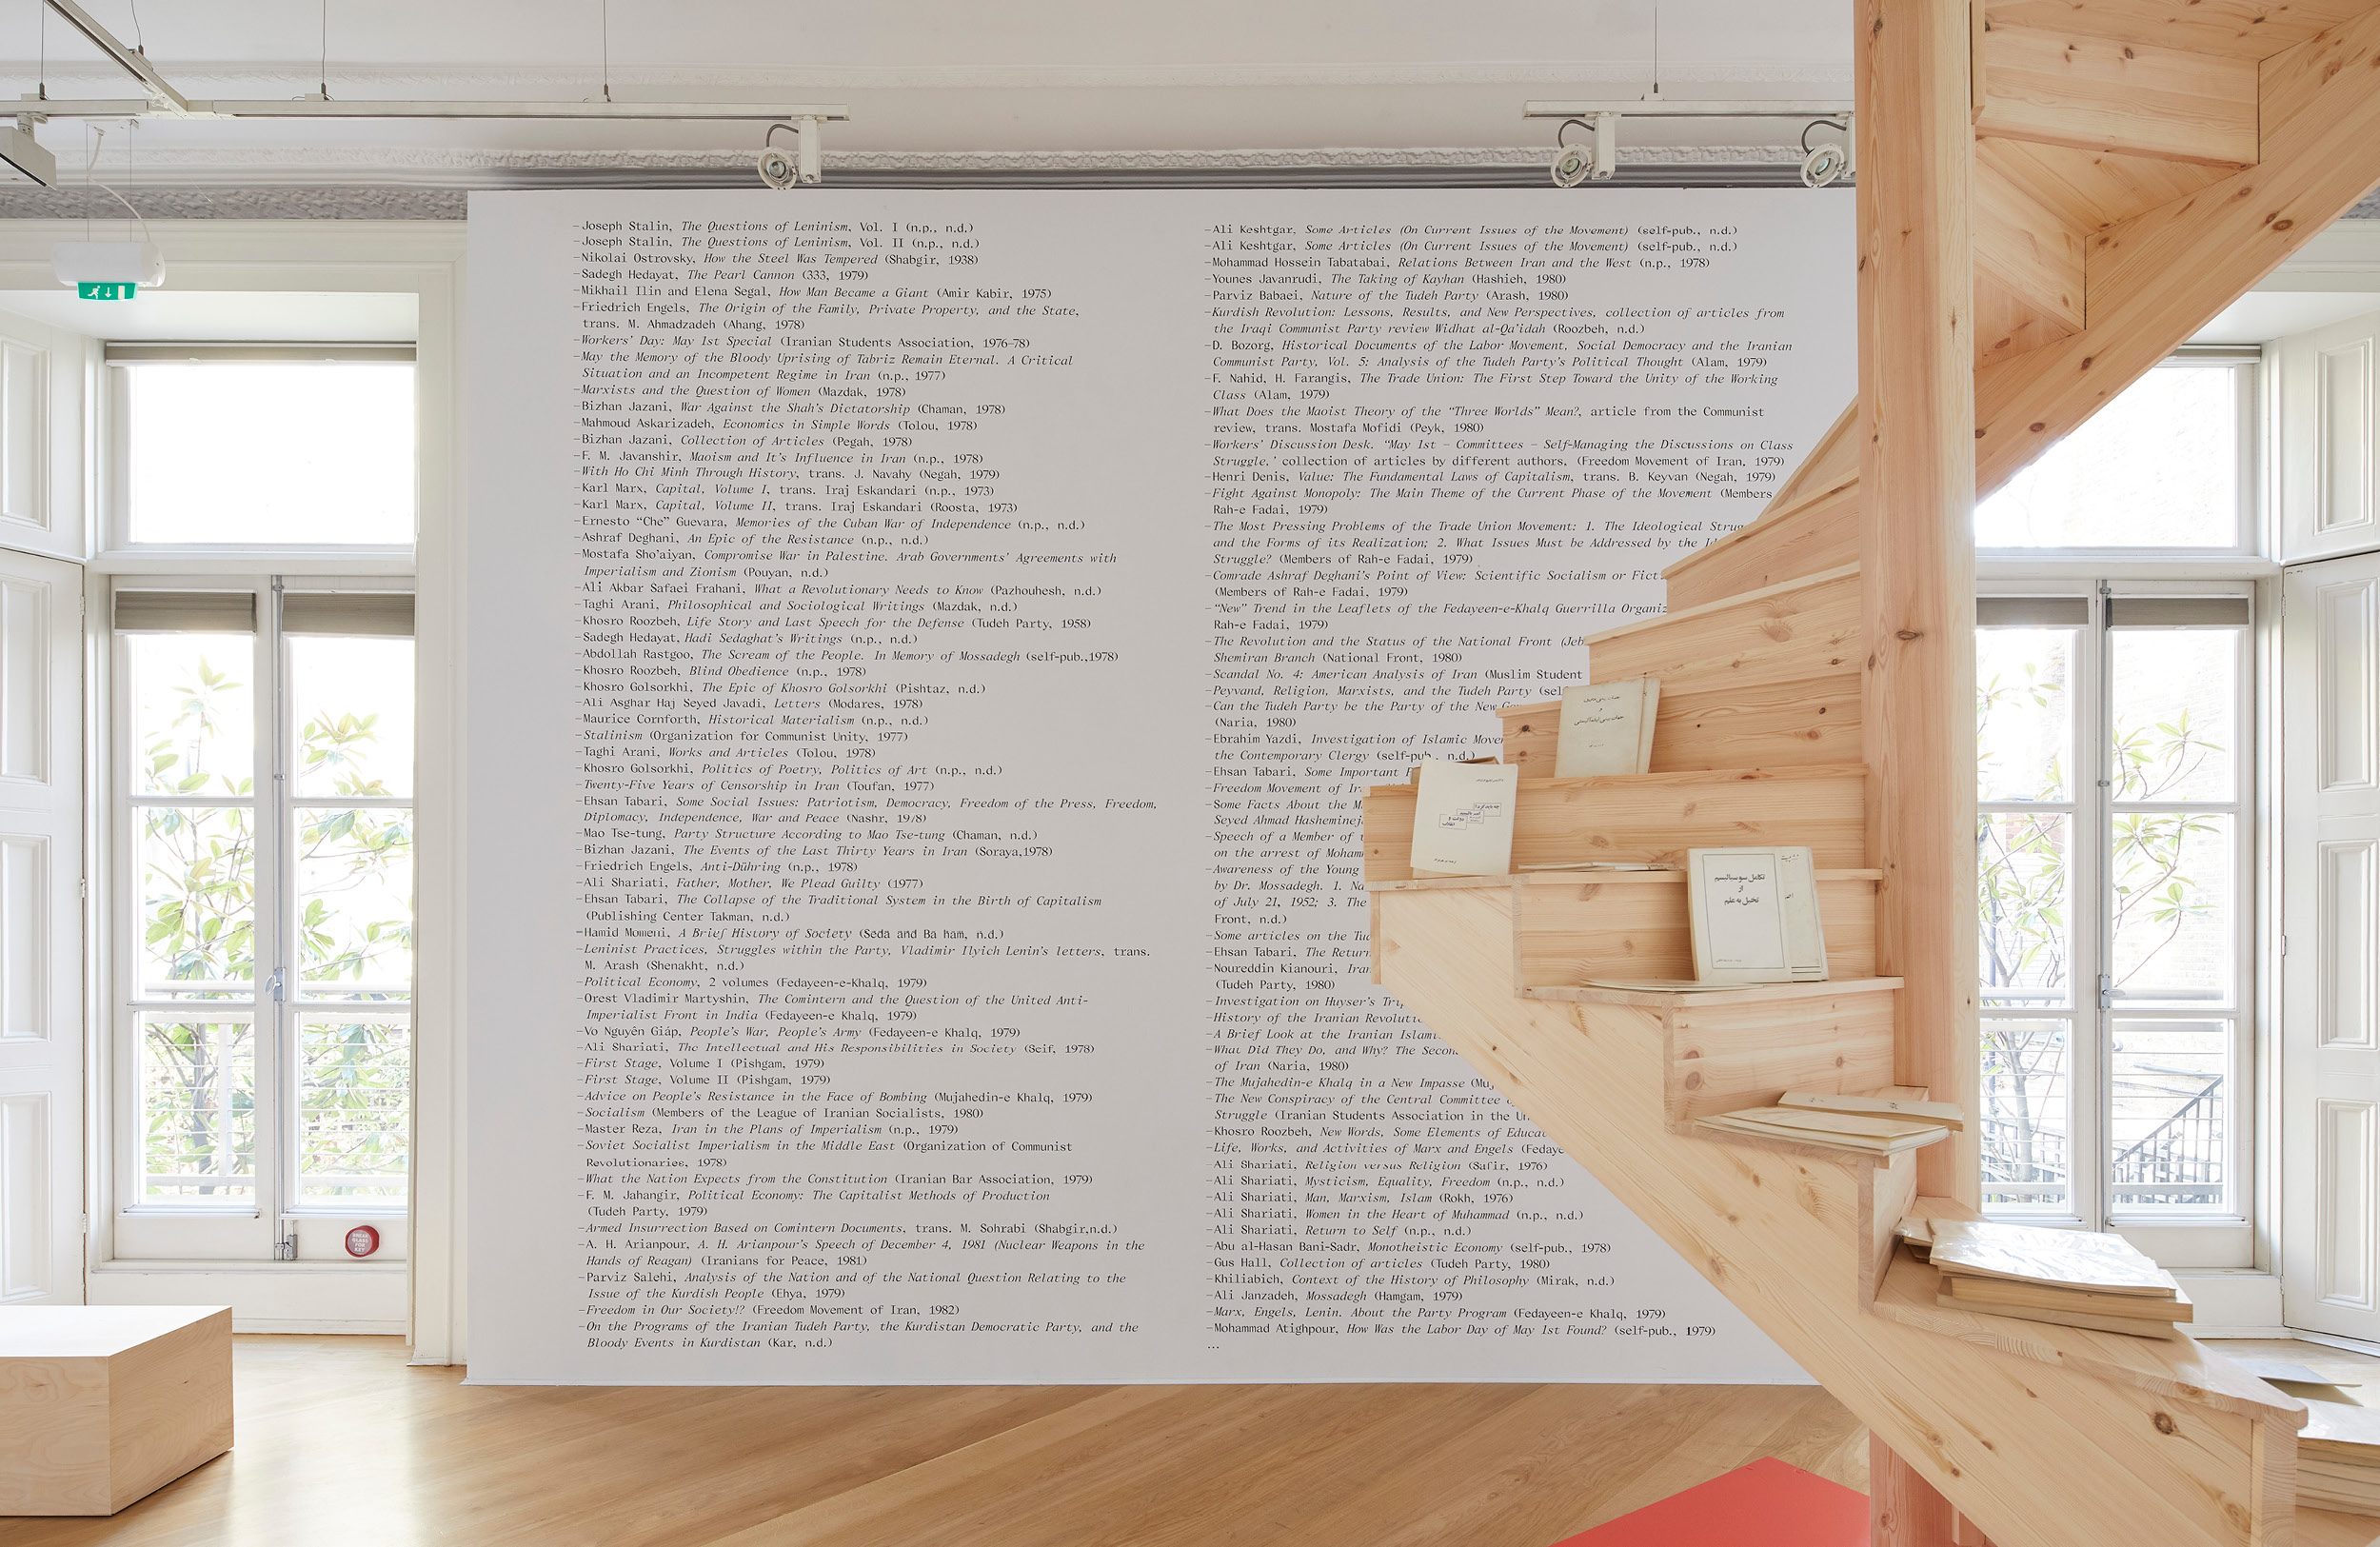 -Joseph Stalin, The Questions of Leninism, Vol. I (n.p., n.d.)
-Joseph Stalin, The Questions of Leninism, Vol. II (n.p., n.d.)
-Nikolai Ostrovsky, How the Steel Was Tempered (Shabgir, 1938)
-Sadegh Hedayat, The Pearl Cannon (333, 1979)
-Mikhail Ilin and Elena Segal, How Man Became a Giant (Amir Kabir, 1975)
-Friedrich Engels, The Origin of the Family, Private Property, and the State,
trans. M. Ahmadzadeh (Ahang, 1978)
-Workers' Day: May 1st Special (Iranian Students Association, 1976-78)
-May the Memory of the Bloody Uprising of Tabriz Remain Eternal. A Critical
Situation and an Incompetent Regime in Iran (n.p., 1977)
-Marxists and the Question of Women (Mazdak, 1978)
-Bizhan Jazani, War Against the Shah's Dictatorship (Chaman, 1978)
-Mahmoud Askarizadeh, Economics in Simple Words (Tolou, 1978)
-Bizhan Jazani, Collection of Articles (Pegah, 1978)
-F. M. Javanshir, Maoism and It's Influence in Iran (n.p., 1978)
-With Ho Chi Minh Through History, trans. J. Navahy (Negah, 1979)
-Karl Marx, Capital, Volume I, trans. Iraj Eskandari (n.p., 1973)
-Karl Marx, Capital, Volume II, trans. Iraj Eskandari (Roosta, 1973)
-Ernesto “Che” Guevara, Memories of the Cuban War of Independence (n.p., n.d.)
-Ashraf Deghani, An Epic of the Resistance (n.p., n.d.)
-Mostafa Sho'aiyan, Compromise War in Palestine. Arab Governments' Agreements with
Imperialism and Zionism (Pouyan, n.d.)
-Ali Akbar Safaei Frahani, What a Revolutionary Needs to Know (Pazhouhesh, n.d.)
-Taghi Arani, Philosophical and Sociological Writings (Mazdak, n.d.)
-Khosro Roozbeh, Life Story and Last Speech for the Defense (Tudeh Party, 1958)
-Sadegh Hedayat, Hadi Sedaghat's Writings (n.p., n.d.)
-Abdollah Rastgoo, The Scream of the People. In Memory of Mossadegh (self-pub.,1978)
-Khosro Roozbeh, Blind Obedience (n.p., 1978)
-Khosro Golsorkhi, The Epic of Khosro Golsorkhi (Pishtaz, n.d.)
-Ali Asghar Haj Seyed Javadi, Letters (Modares, 1978)
-Maurice Cornforth, Historical Materialism (n.p., n.d.)
-Stalinism (Organization for Communist Unity, 1977)
-Taghi Arani, Works and Articles (Tolou, 1978)
-Khosro Golsorkhi, Politics of Poetry, Politics of Art (n.p., n.d.)
-Twenty-Five Years of Censorship in Iran (Toufan, 1977)
-Ehsan Tabari, Some Social Issues: Patriotism, Democracy, Freedom of the Press, Freedom,
Diplomacy, Independence, War and Peace (Nashr, 1978)
-Mao Tse-tung, Party Structure According to Mao Tse-tung (Chaman, n.d.)
-Bizhan Jazani, The Events of the Last Thirty Years in Iran (Soraya,1978)
-Friedrich Engels, Anti-Dühring (n.p., 1978)
-Ali Shariati, Father, Mother, We Plead Guilty (1977)
-Ehsan Tabari, The Collapse of the Traditional System in the Birth of Capitalism
(Publishing Center Takman, n.d.)
-Hamid Momeni, A Brief History of Society (Seda and Ba ham, n.d.)
-Leninist Practices, Struggles within the Party, Vladimir Ilyich Lenin's letters, trans.
M. Arash (Shenakht, n.d.)
-Political Economy, 2 volumes (Fedayeen-e-Khalq, 1979)
-Orest Vladimir Martyshin, The Comintern and the Question of the United Anti-
Imperialist Front in India (Fedayeen-e Khalq, 1979)
-Vo Nguyên Giáp, People's War, People's Army (Fedayeen-e Khalq, 1979)
-Ali Shariati, The Intellectual and His Responsibilities in Society (Seif, 1978)
-First Stage, Volume I (Pishgam, 1979)
-First Stage, Volume II (Pishgam, 1979)
-Advice on People's Resistance in the Face of Bombing (Mujahedin-e Khalq, 1979)
-Socialism (Members of the League of Iranian Socialists, 1980)
-Master Reza, Iran in the Plans of Imperialism (n.p., 1979)
-Soviet Socialist Imperialism in the Middle East (Organization of Communist
Revolutionaries, 1978)
-What the Nation Expects from the Constitution (Iranian Bar Association, 1979)
-F. M. Jahangir, Political Economy: The Capitalist Methods of Production
(Tudeh Party, 1979)
-Armed Insurrection Based on Comintern Documents, trans. M. Sohrabi (Shabgir,n.d.)
-A. H. Arianpour, A. H. Arianpour's Speech of December 4, 1981 (Nuclear Weapons in the
Hands of Reagan) (Iranians for Peace, 1981)
-Parviz Salehi, Analysis of the Nation and of the National Question Relating to the
Issue of the Kurdish People (Ehya, 1979)
-Freedom in Our Society!? (Freedom Movement of Iran, 1982)
-On the Programs of the Iranian Tudeh Party, the Kurdistan Democratic Party, and the
Bloody Events in Kurdistan (Kar, n.d.)
-Ali Keshtgar, Some Articles (On Current Issues of the Movement) (self-pub., n.d.)
-Ali Keshtgar, Some Articles (On Current Issues of the Movement) (self-pub., n.d.)
-Mohammad Hossein Tabatabai, Relations Between Iran and the West (n.p., 1978)
-Younes Javanrudi, The Taking of Kayhan (Hashieh, 1980)
-Parviz Babaei, Nature of the Tudeh Party (Arash, 1980)
-Kurdish Revolution: Lessons, Results, and New Perspectives, collection of articles from
the Iraqi Communist Party review Widhat al-Qa'idah (Roozbeh, n.d.)
-D. Bozorg, Historical Documents of the Labor Movement, Social Democracy and the Iranian
Communist Party, Vol. 5: Analysis of the Tudeh Party's Political Thought (Alam, 1979)
-F. Nahid, H. Farangis, The Trade Union: The First Step Toward the Unity of the Working
Class (Alam, 1979)
-What Does the Maoist Theory of the “Three Worlds” Mean?, article from the Communist
review, trans. Mostafa Mofidi (Peyk, 1980)
-Workers' Discussion Desk. “May 1st – Committees – Self-Managing the Discussions on Class
Struggle.' collection of articles by different authors, (Freedom Movement of Iran, 1979)
-Henri Denis, Value: The Fundamental Laws of Capitalism, trans. B. Keyvan (Negah, 1979)
-Fight Against Monopoly: The Main Theme of the Current Phase of the Movement (Members
Rah-e Fadai, 1979)
-The Most Pressing Problems of the Trade Union Movement: 1. The Ideological Strug
and the Forms of its Realization; 2. What Issues Must be Addressed by the
Struggle? (Members of Rah-e Fadai, 1979)
-Comrade Ashraf Deghani's Point of View: Scientific Socialism or Fict
(Members of Rah-e Fadai, 1979)
-“New” Trend in the Leaflets of the Fedayeen-e-Khalq Guerrilla Organiz
Rah-e Fadai, 1979)
-The Revolution and the Status of the National Front (Jeb
Shemiran Branch (National Front, 1980)
-Scandal No. 4: American Analysis of Iran (Muslim Student
-Peyvand, Religion, Marxists, and the Tudeh Party (sel
-Can the Tudeh Party be the Party of the New
(Naria, 1980)
-Ebrahim Yazdi, Investigation of Islamic Move
the Contemporary Clergy (self-pub., n.d.)
-Ehsan Tabari, Some Important
-Freedom Movement of Ir
-Some Facts About the M
Seyed Ahmad Hashemineja
-Speech of a Member of
on the arrest of Moham
-Awareness of the Young
by Dr. Mossadegh. 1. Na
of July 21, 1952; 3. The
Front, n.d.)
-Some articles on the Tud
-Ehsan Tabari, The Return
-Noureddin Kianouri, Iran
(Tudeh Party, 1980)
-Investigation on Huyser's Trip
-History of the Iranian Revoluti
-A Brief Look at the Iranian Islami
-What Did They Do, and Why? The Secon
of Iran (Naria, 1980)
-The Mujahedin-e Khalq in a New Impasse (Muj
-The New Conspiracy of the Central Committee
Struggle (Iranian Students Association in the Un
-Khosro Roozbeh, New Words, Some Elements of Educat
-Life, Works, and Activities of Marx and Engels (Fedaye
-Ali Shariati, Religion versus Religion (Safir, 1976)
-Ali Shariati, Mysticism, Equality, Freedom (n.p., n.d.)
-Ali Shariati, Man, Marxism, Islam (Rokh, 1976)
-Ali Shariati, Women in the Heart of Muhammad (n.p., n.d.)
-Ali Shariati, Return to Self (n.p., n.d.)
-Abu al-Hasan Bani-Sadr, Monotheistic Economy (self-pub., 1978)
-Gus Hall, Collection of articles (Tudeh Party, 1980)
-Khiliabich, Context of the History of Philosophy (Mirak, n.d.)
-Ali Janzadeh, Mossadegh (Hamgam, 1979)
-Marx, Engels, Lenin. About the Party Program (Fedayeen-e Khalq, 1979)
-Mohammad Atighpour, How Was the Labor Day of May 1st Found? (self-pub., 1979)
...
تکامل سوسیالیسم
از
تخیل به علم
BREAK
GLASS
FOR
KEY